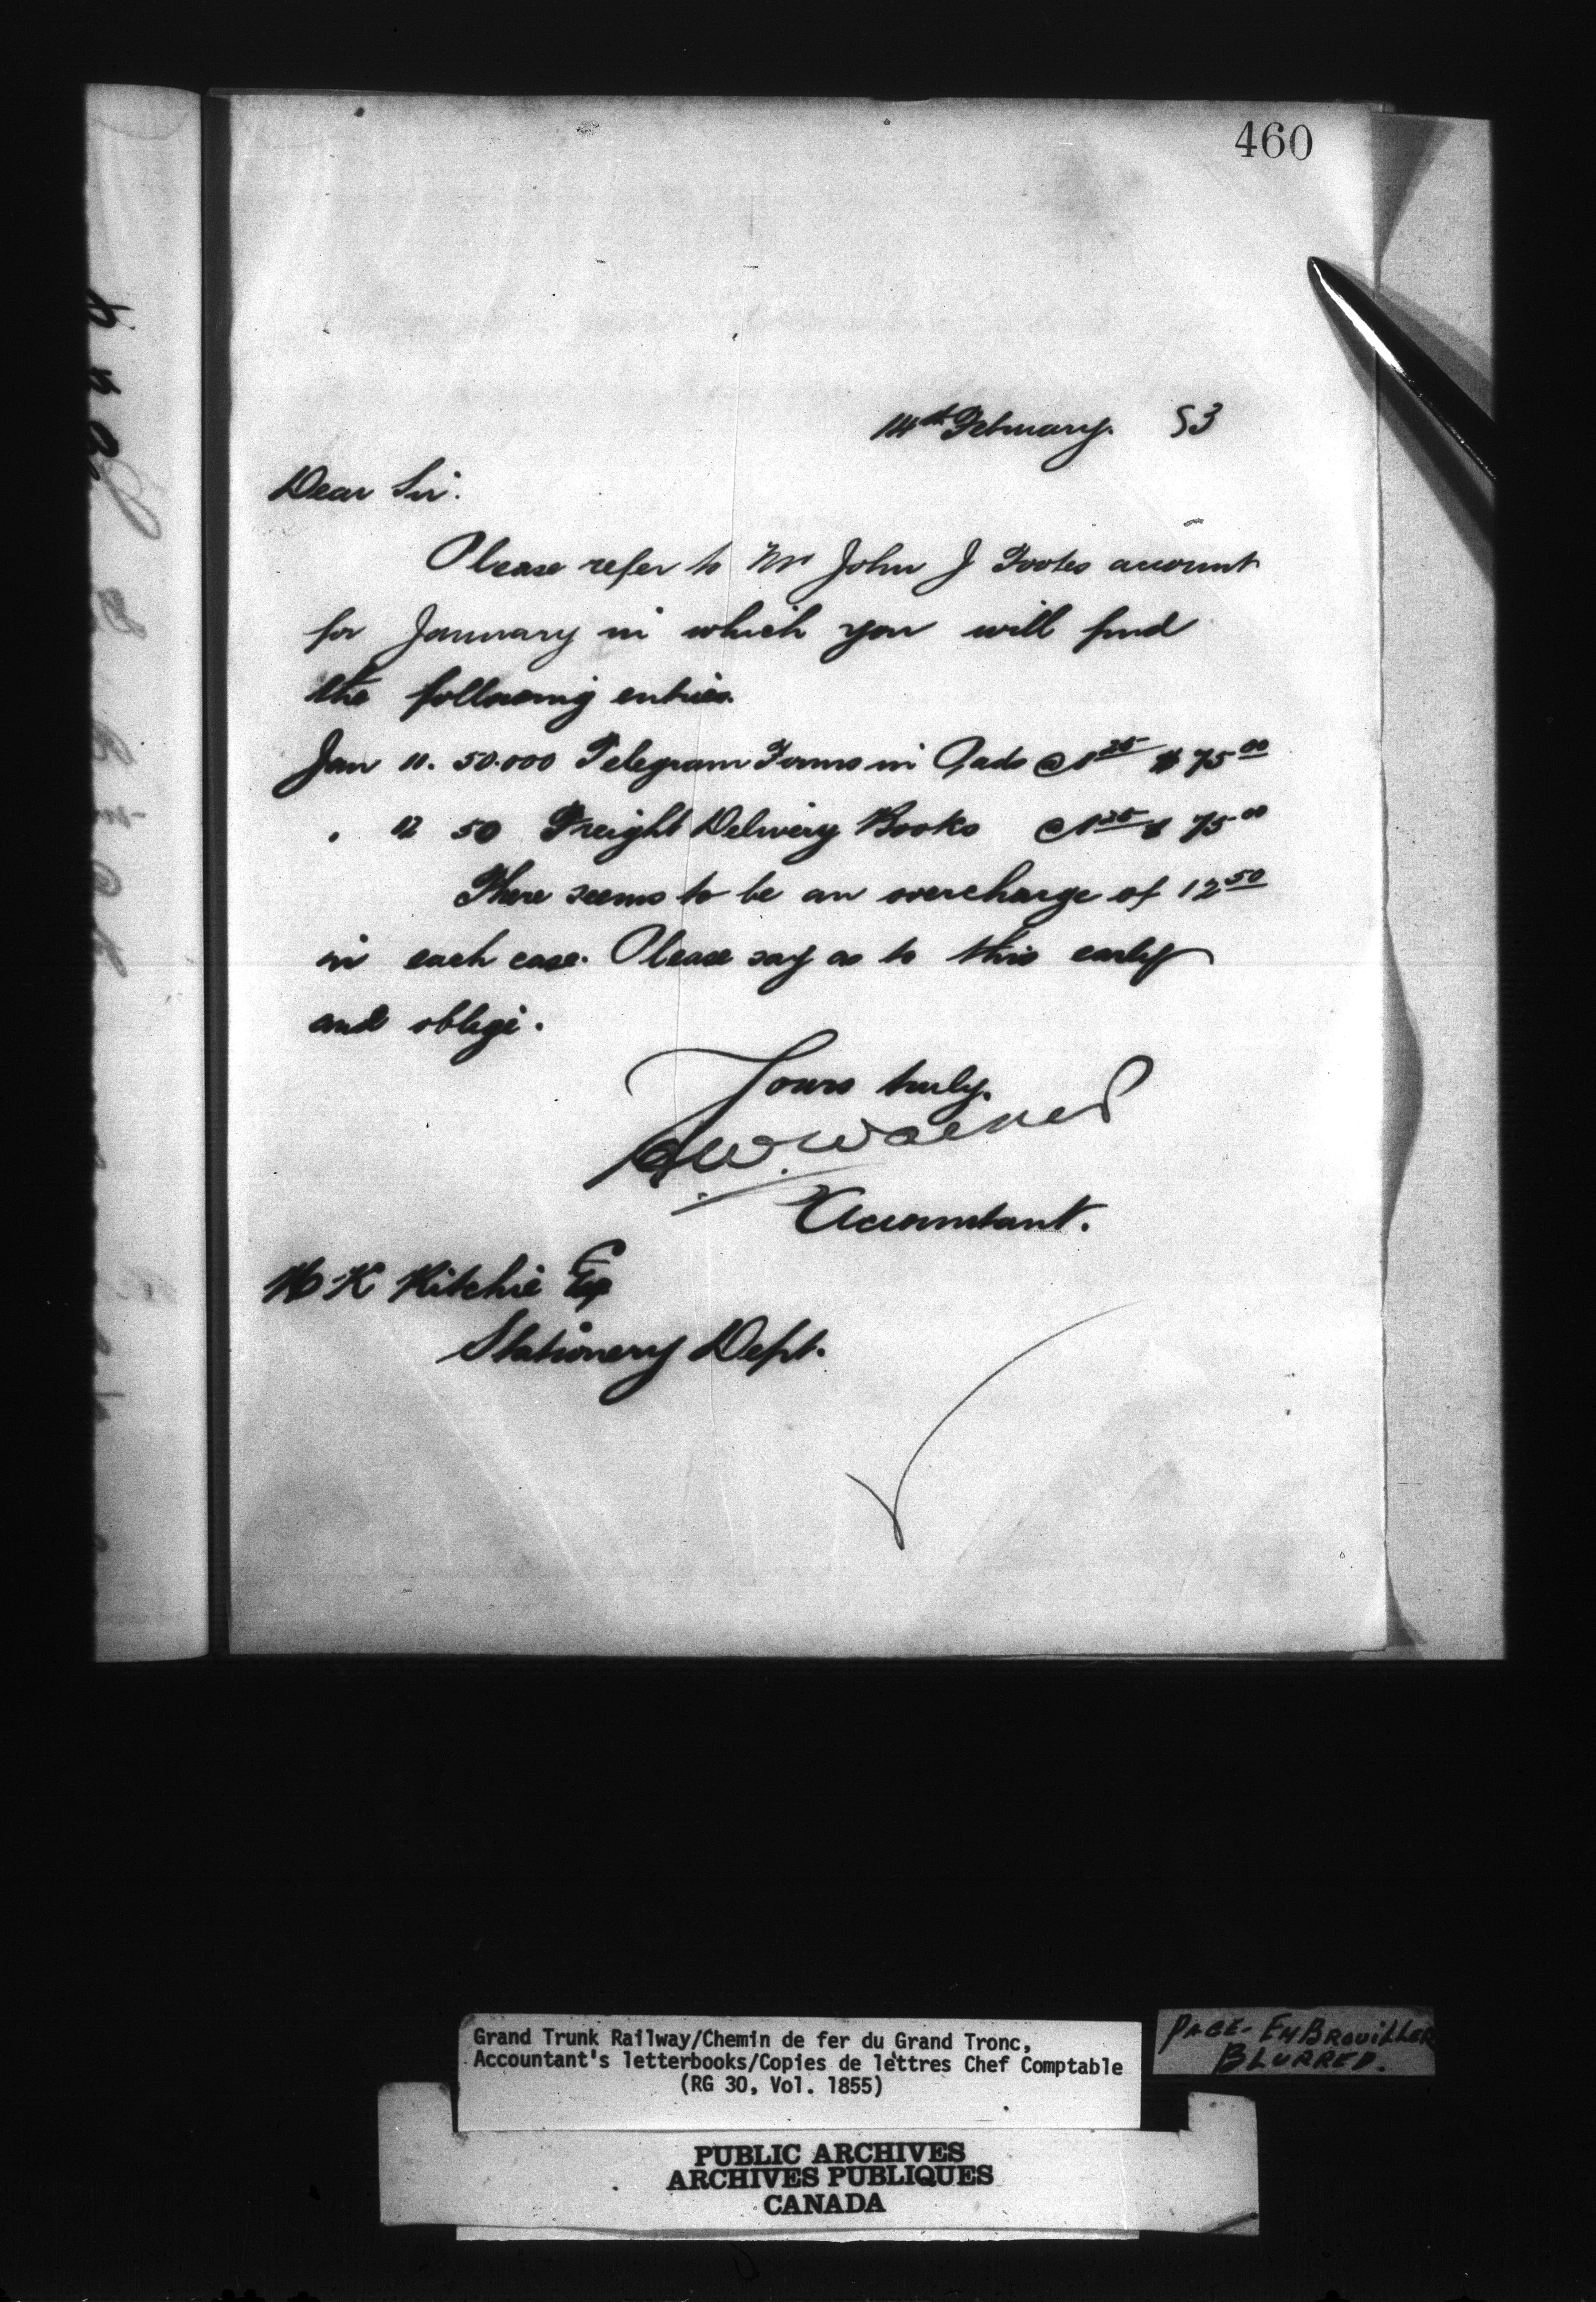 460
14th February. 83
Dear Sir.
Please refer to Mr John J Footes account
for January in which you will find
the following entries.
Jan 11. 50.000 Telegram Forms in Pads @ 1 25 $ 75 00
" 12 50 Freight Delivery Books @ 1 25 $ 75 00
There seems to be an overcharge of 12 50
in each case. Please say as to this early
and oblige.
Yours truly.
Accountant.
Ritchie Esq
Stationery Dept.
Grand Trunk Railway/Chemin de fer du Grand Tronc,
Accountant's letterbooks/Copies de lettres Chef Comptable
(RG 30, Vol. 1855)
PAGE - EMBROUILLER
BLURRED.
PUBLIC ARCHIVES
ARCHIVES PUBLIQUES
CANADA